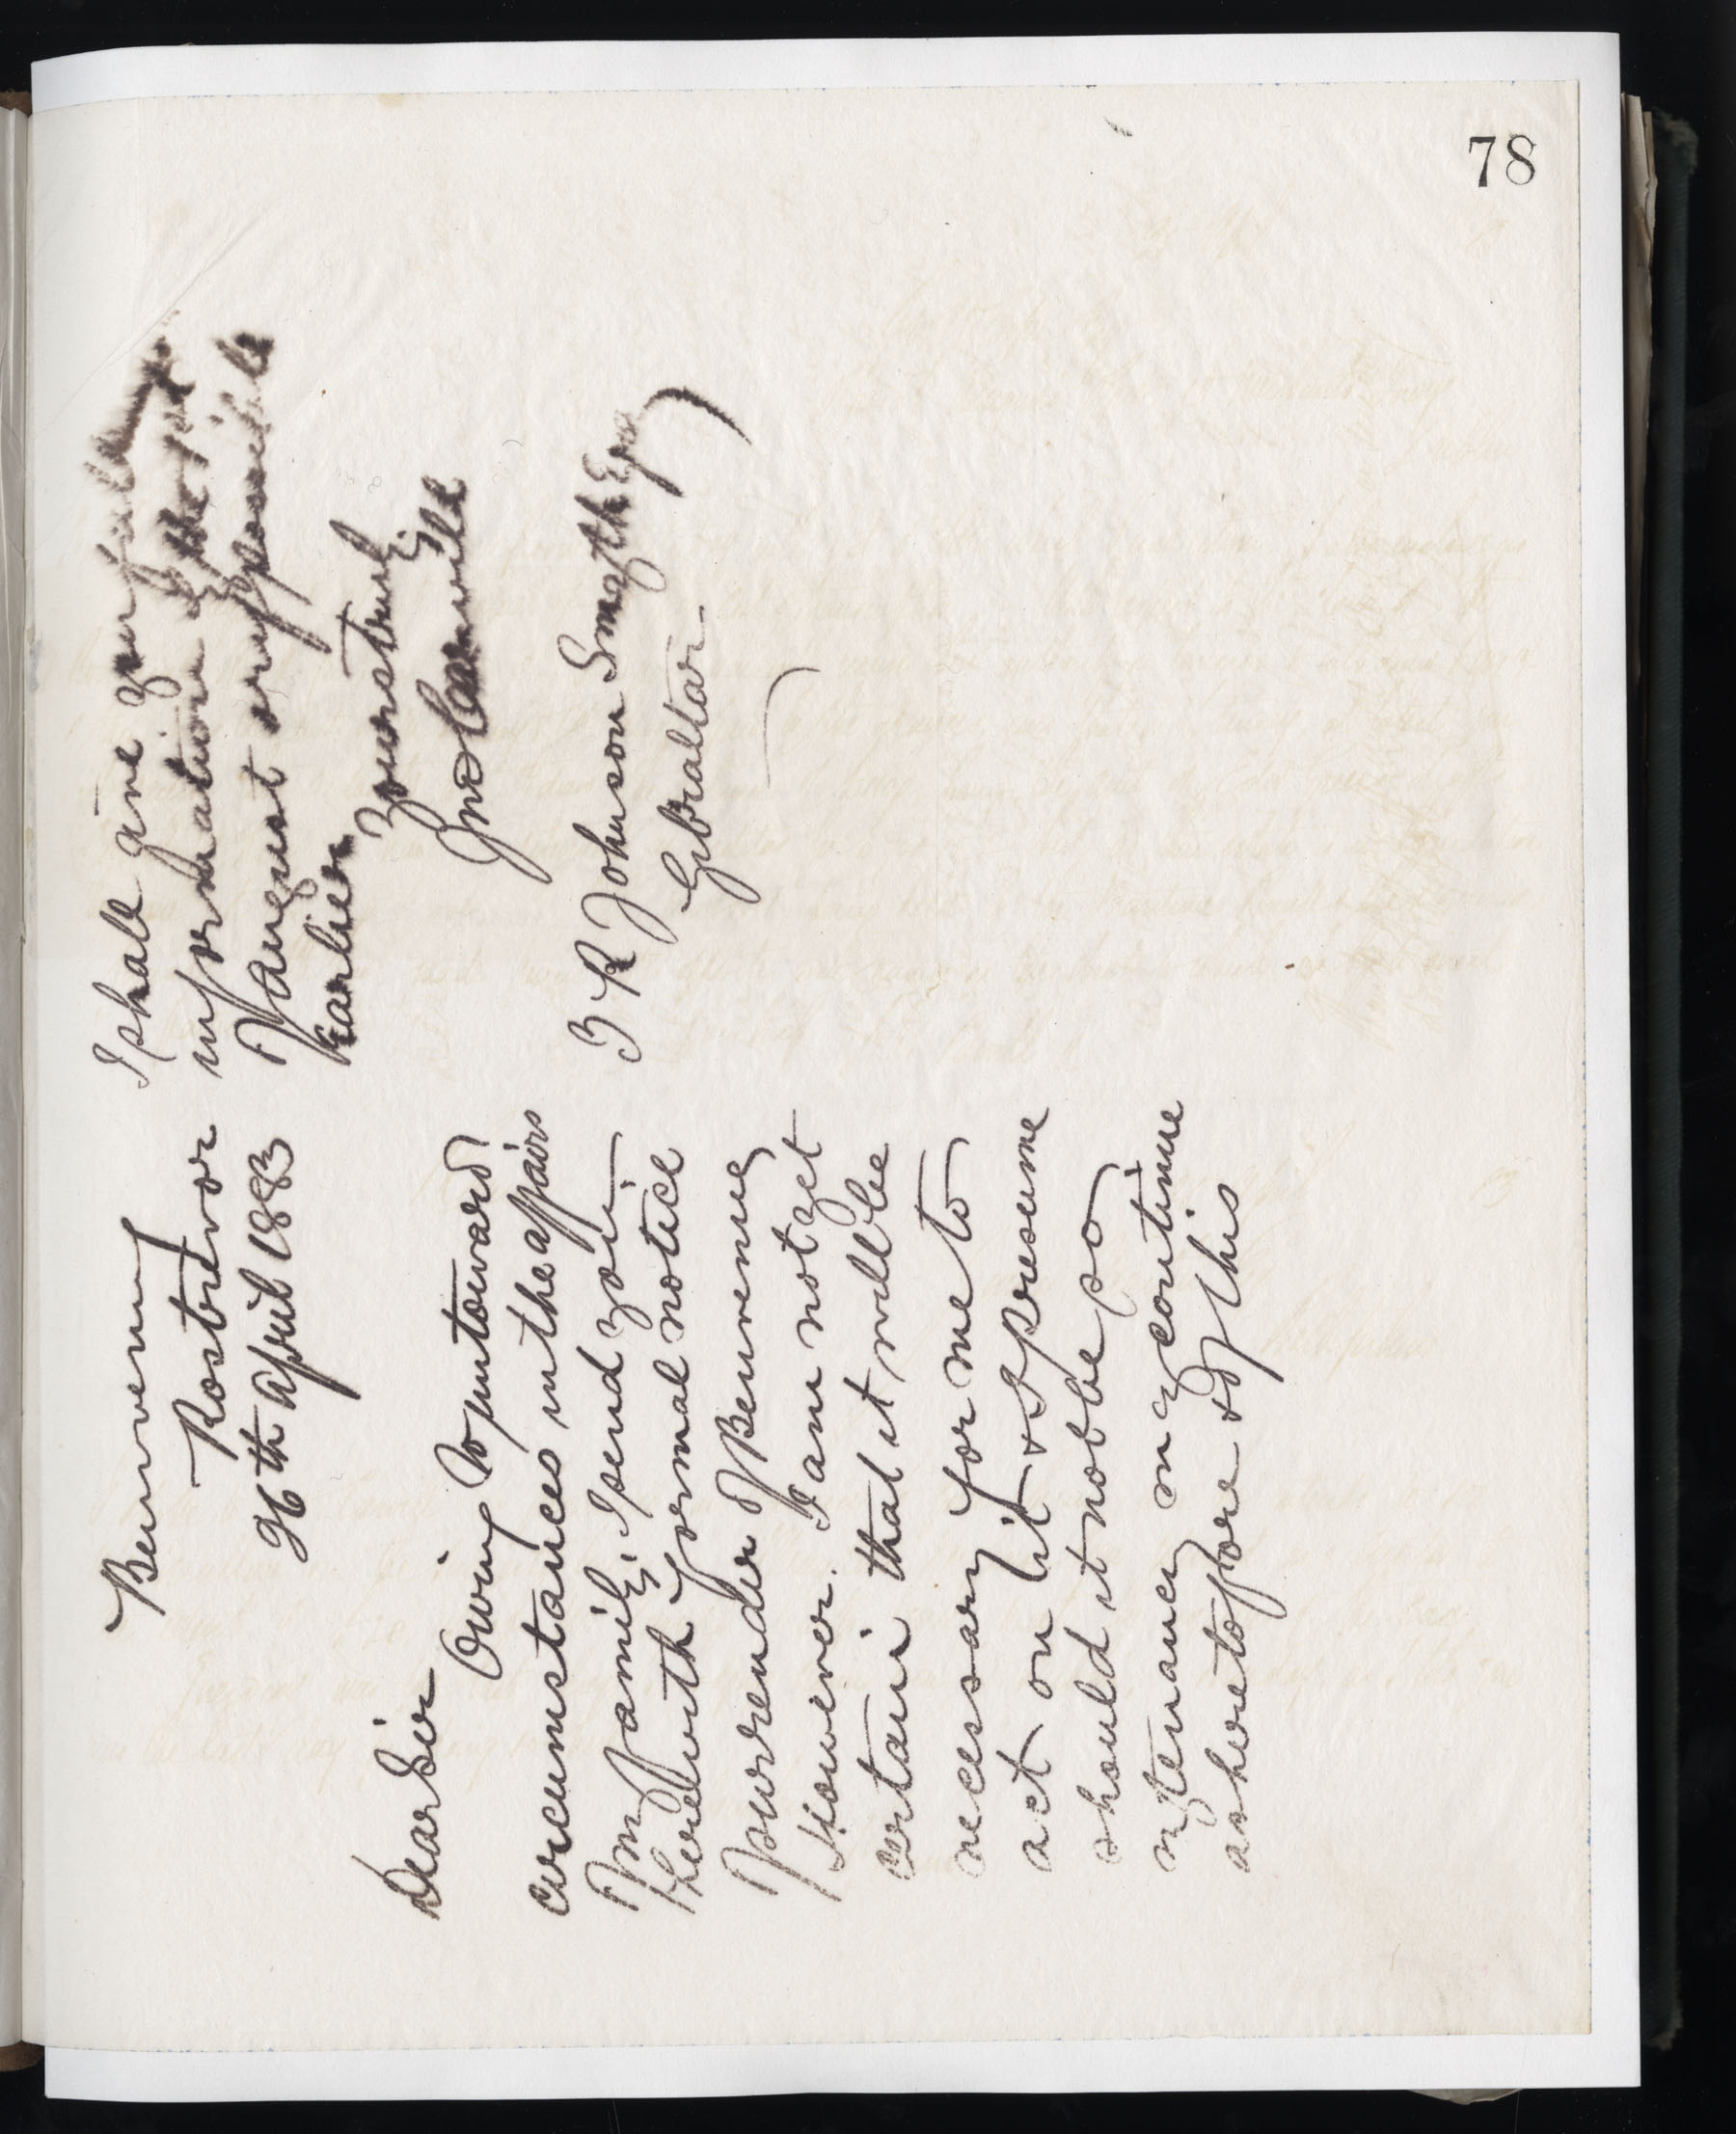 78
Benvenue
Rostrevor
26th April 1883
Dear Sir
Owing to untoward
circumstances in the affairs
of my family, I send you
herewith formal notice
of surrender of Benvenue
However. I am not yet
certain that it will be
necessary for me to
act on it & I presume
should it not be so
my tenancy may continue
as heretofore & of this
I shall give you
information by the 1st
August or if possible
earlier
Yours truly
Jno
T R Johnson Smyth Esqre
Gibraltar